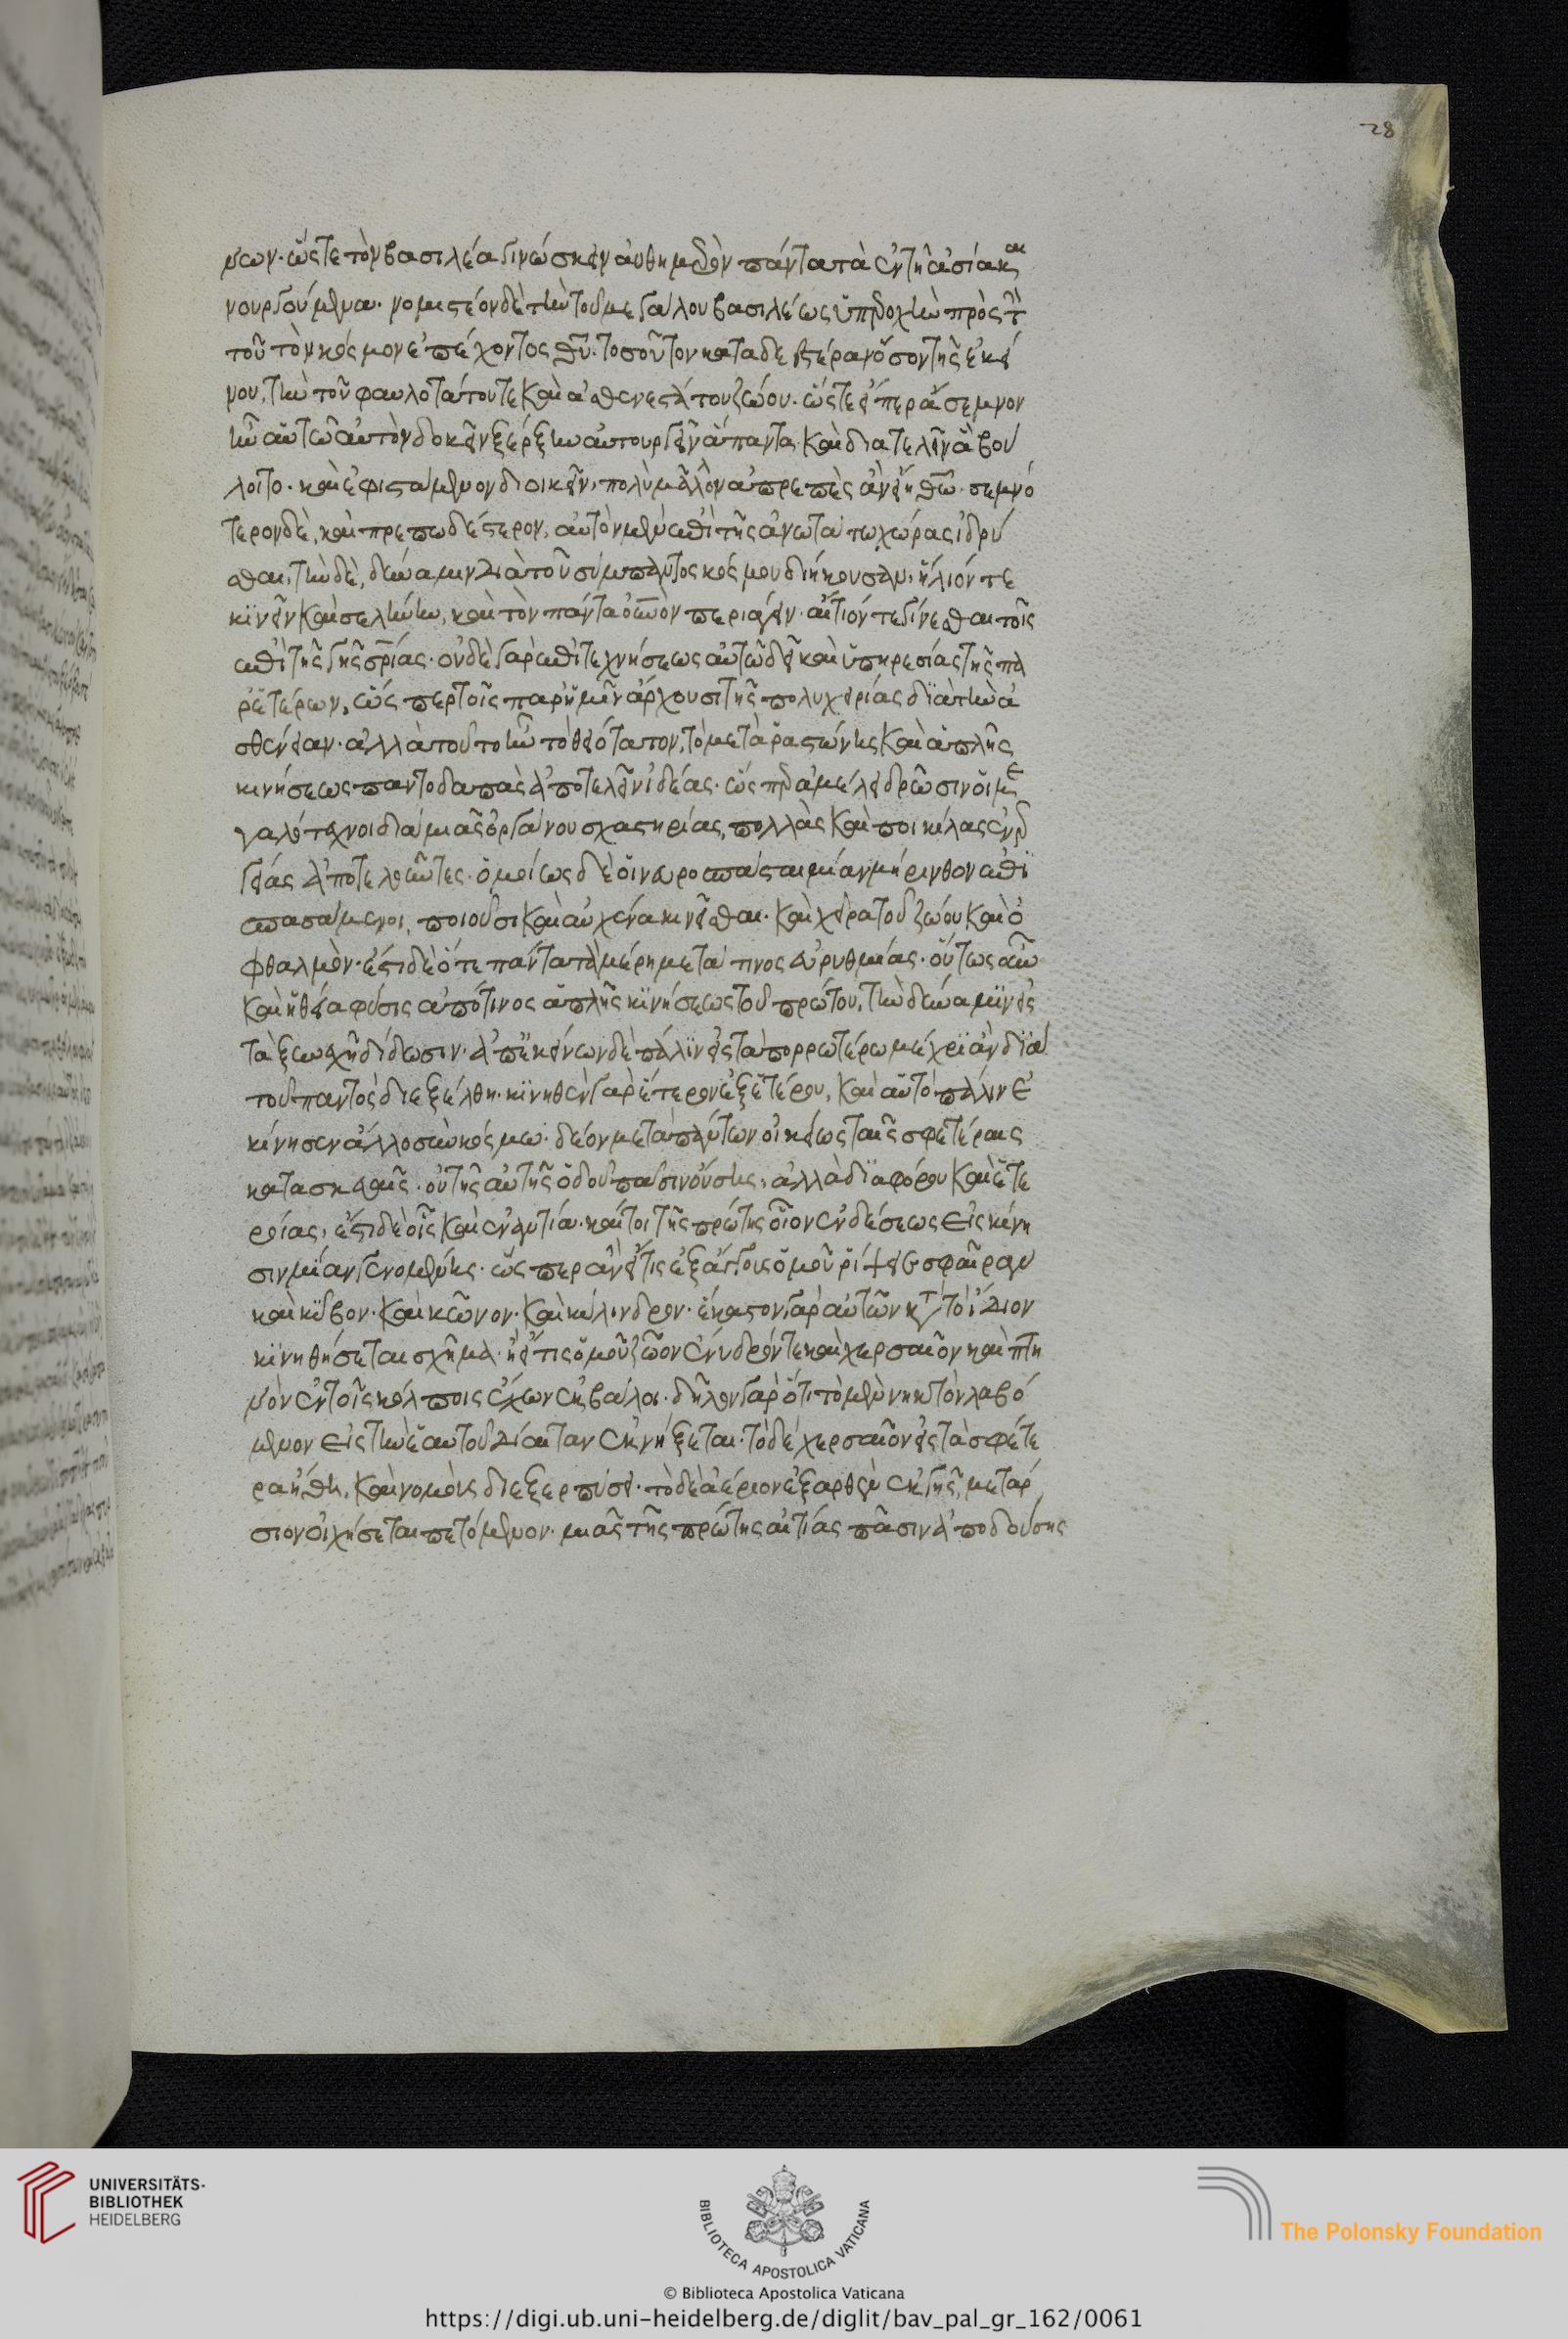 28
μων· ὥστε τὸν βασιλέα γινώσκειν αὐθημερὸν πάντα τὰ ἐν τῇ ἀσίᾳ και
νουργούμενα. νομιστέον δὲ τὴν τοῦ μεγάλου βασιλέως ὑπεροχὴν πρὸς τὴν
τοῦ τὸν κόσμον ἐπέχοντος θυ. τοσοῦτον καταδεεστέραν ὅσον τῆς ἐκεί
νου, τὴν τοῦ φαυλοτάτου τε καὶ ἀσθενεστάτου ζώου. ὥστε εἴπερ ἄσεμνον
ἦν αὑτῶ αὐτὸν δοκεῖν ξέρξην αὐτουργεῖν ἅπαντα καὶ διατελεῖν ἃ βού
λοιτο. καὶ ἐφιστάμενον διοικεῖν, πολὺ μᾶλλον ἀπρεπὲς ἂν εἴη θω. σεμνό
τερον δὲ, καὶ πρεπωδέστερον, αὐτὸν μὲν ἐπὶ τῆς ἀνωτάτω χώρας ἱδρύ
σθαι, τὴν δὲ, δύναμιν διὰ τοῦ σύμπαντος κόσμου διήκουσαν, ἥλιόν τε
κινεῖν καὶ σελήνην, καὶ τὸν πάντα οὐνὸν περιάγειν. αἴτιόν τε γίνεσθαι τοῖς
ἐπὶ τῆς γῆς σρίας. οὐδὲ γὰρ ἐπὶ τεχνήσεως αὐτῶ δεῖ καὶ ὑπηρεσίας τῆς πα
ρ' ἑτέρων, ὥσπερ τοῖς παρ' ἡμῖν ἄρχουσι τῆς πολυχειρίας διὰ τὴν ἀ
σθένειαν. ἀλλὰ τοῦτο ἦν τὸ θειότατον, τὸ μετὰ ῥᾳστώνης καὶ ἁπλῆς
κινήσεως παντοδαπὰς ἀποτελεῖν ἰδέας. ὥσπερ ἀμέλει δρῶσιν οἱ με
γαλότεχνοι διὰ μιᾶς ὀργάνου σχαστηρίας, πολλὰς καὶ ποικίλας ἐνερ
γείας ἀποτελοῦντες. ὁμοίως δὲ οἱ νευροσπάσται μίαν μήρινθον ἐπι
σπασάμενοι, ποιοῦσι καὶ αὐχένα κινεῖσθαι. καὶ χεῖρα τοῦ ζώου καὶ ὀ
φθαλμόν. ἔστι δὲ ὅτε πάντα τὰ μέρη μετά τινος εὐρυθμίας. οὕτως οὖν
καὶ ἡ θεία φύσις ἀπό τινος ἁπλῆς κινήσεως τοῦ πρώτου, τὴν δύναμιν εἰς
τὰ ξυνεχῆ δίδωσιν. ἀπ' ἐκείνων δὲ πάλιν εἰς τὰ πορρωτέρω μέχρι ἂν διὰ
τοῦ παντὸς διεξέλθη. κινηθὲν γὰρ ἕτερον ἐξ ἑτέρου, καὶ αὐτὸ πάλιν ἐ
κίνησεν ἄλλο σὺν κόσμω. δέον μετὰ πάντων οἰκείως ταῖς σφετέραις
κατασκευαῖς. οὐ τῆς αὐτῆς ὁδοῦ πᾶσιν οὔσης, ἀλλὰ διαφόρου καὶ ἑτε
ροίας, ἔστι δὲ οἷς καὶ ἐναντία. καίτοι τῆς πρώτης οἷον ἐνδέσεως εἰς κίνη
σιν μίαν γενομένης. ὥσπερ ἂν εἴ τις ἐξ ἄγγους ὁμοῦ ῥίψειε σφαῖραν
καὶ κύβον. καὶ κῶνον. καὶ κύλινδρον. ἕκαστον γὰρ αὐτῶν κατὰ τὸ ἴδιον
κινηθήσεται σχῆμα. ἢ εἴ τις ὁμοῦ ζῶον ἔνυδρόν τε καὶ χερσαῖον καὶ πτη
νὸν ἐν τοῖς κόλποις ἔχων ἐκβάλοι. δῆλον γὰρ ὅτι τὸ μὲν νηκτὸν λαβό
μενον εἰς τὴν ἑαυτοῦ δίαιταν ἐκνήξεται. τὸ δὲ χερσαῖον εἰς τὰ σφέτε
ρα ἤθη, καὶ νομοὺς διεξερπύσει. τὸ δὲ ἀέριον ἐξαρθὲν ἐκ γῆς, μετάρ
σιον οἰχήσεται πετόμενον. μιᾶς τῆς πρώτης αἰτίας πᾶσιν ἀποδούσης
UNIVERSITÄTS-
BIBLIOTHEK
HEIDELBERG
BIBLIOTECA APOSTOLICA VATICANA
The Polonsky Foundation
© Biblioteca Apostolica Vaticana
https://digi.ub.uni-heidelberg.de/diglit/bav_pal_gr_162/0061